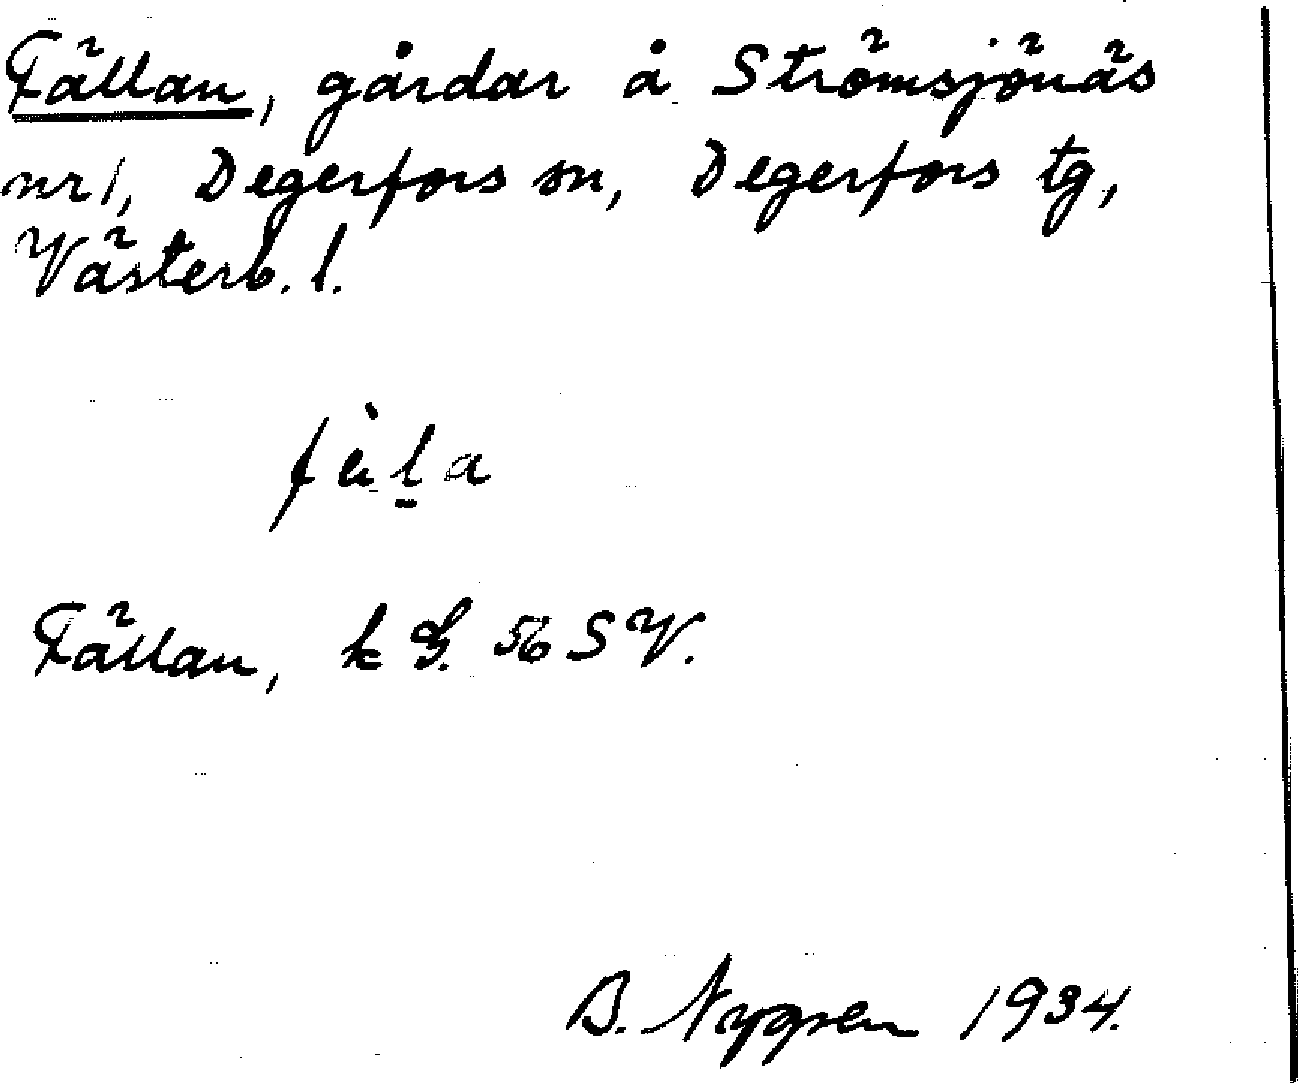 Fällan, gårdar å Strömsjönäs
nr 1, Degerfors sn, Degerfors tg,
Västerb. l.
Fällan, k G. 56 SV.
B. Nygren 1934.